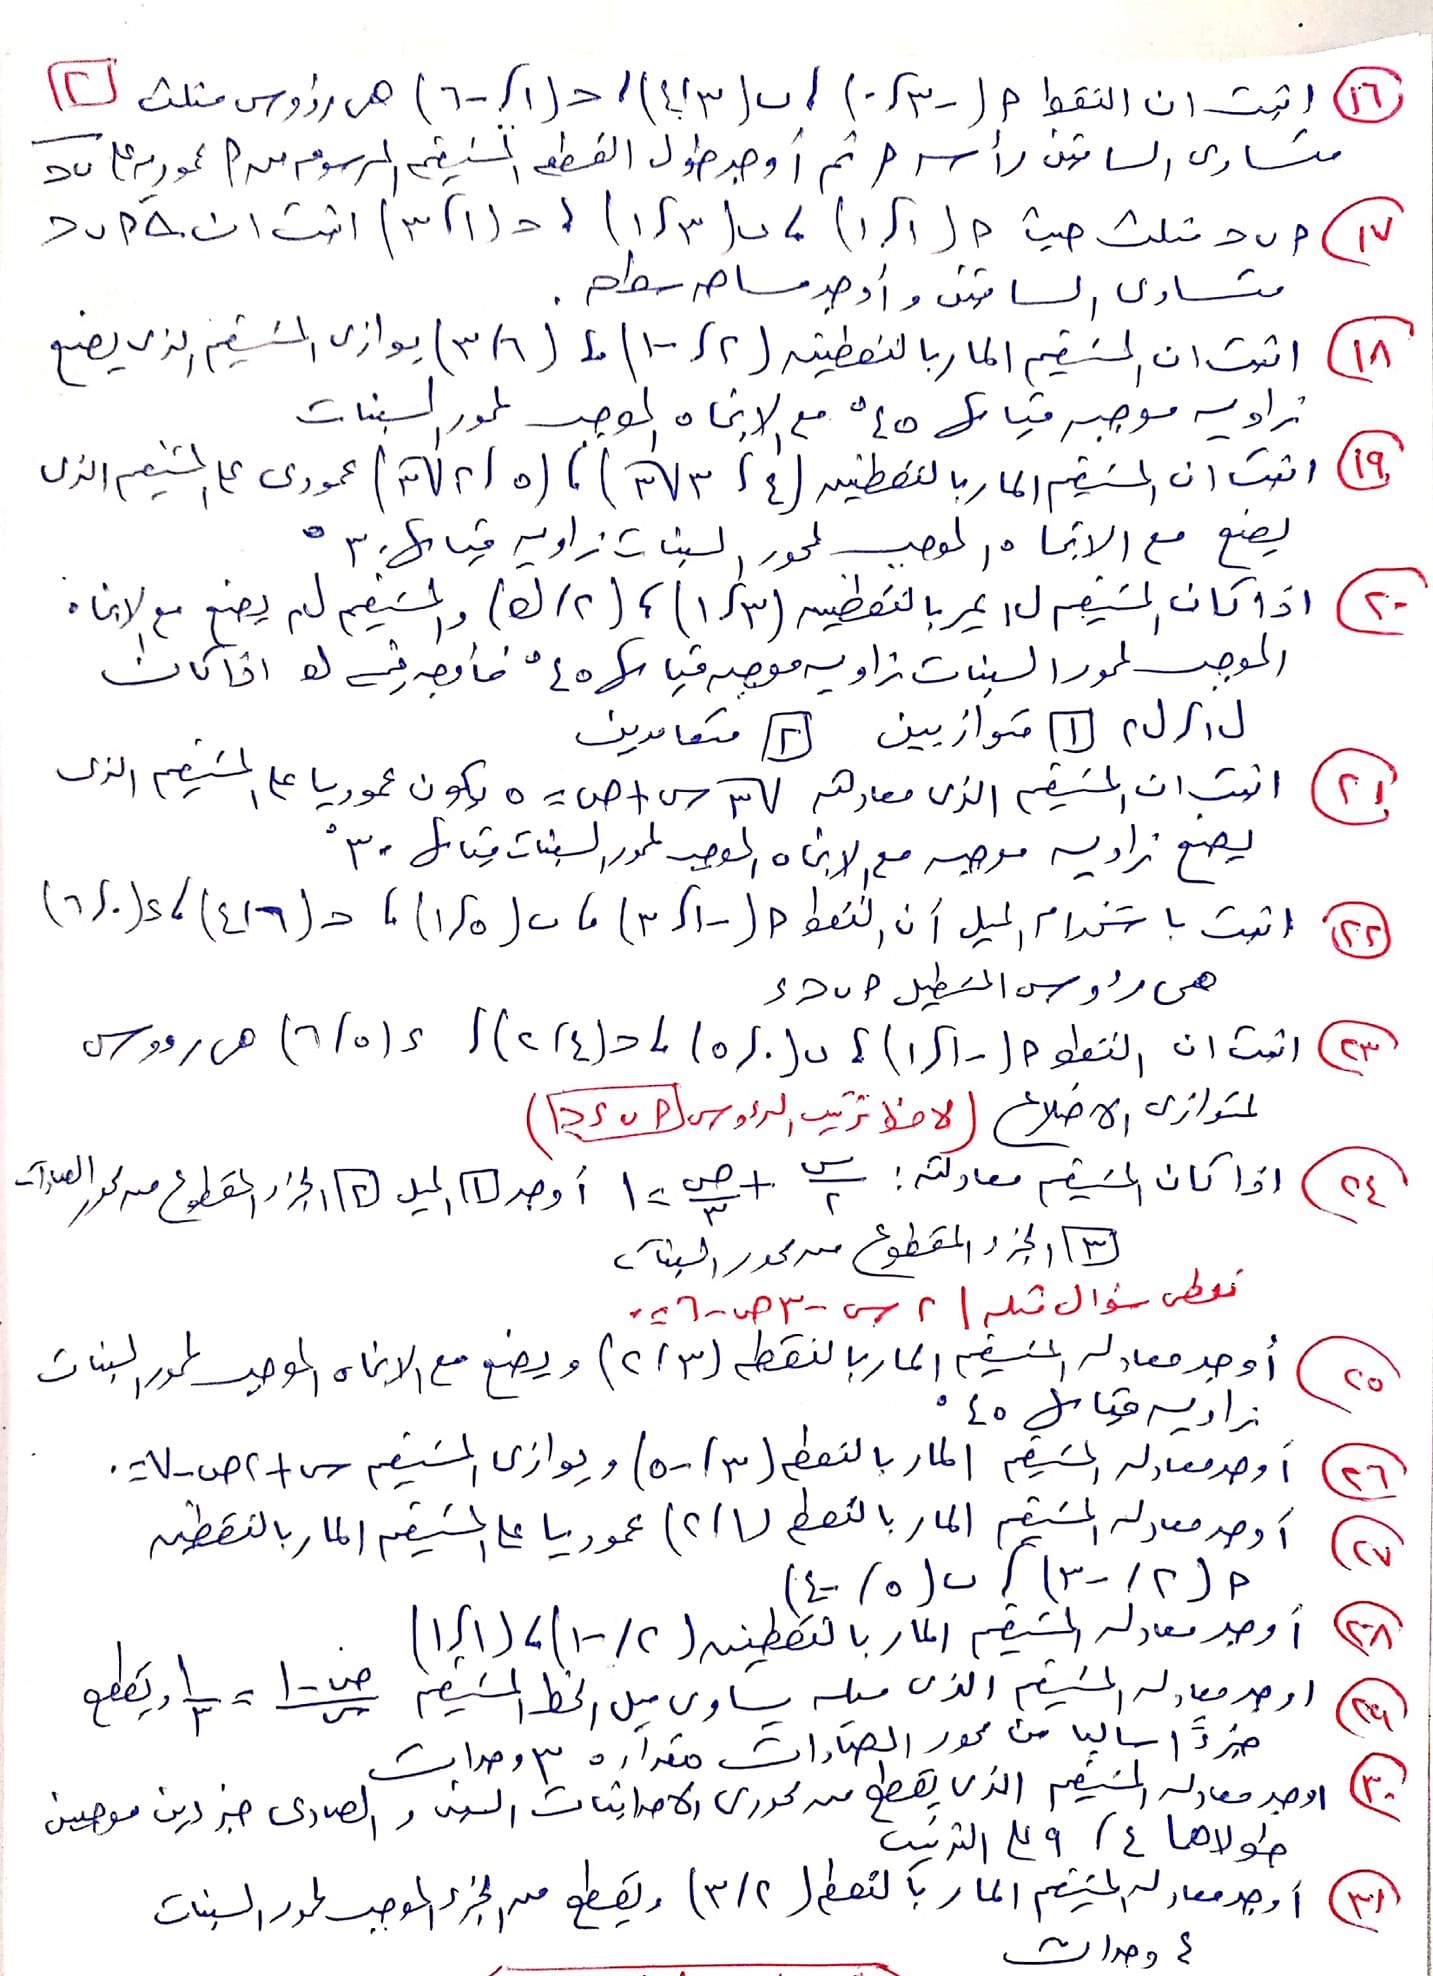 ٢
١٦ اثبت ان النقط م (-٣، ٠) ، ب (٣، ٤) ، حـ (١، -٦) هى رؤوس مثلث
متساوى الساقين رأسه م ثم أوجد طول القطعه المستقيمه المرسومه من م عموديه على ب حـ
١٧ م ب حـ مثلث حيث م (١، ١) ، ب (٣، ١) ، حـ (١، ٣) اثبت ان △ م ب حـ
متساوى الساقين وأوجد مساحه سطحه .
١٨ اثبت ان المستقيم المار بالنقطتين (٢، -١) ، (٦، ٣) يوازى المستقيم الذى يصنع
زاويه موجبه قياسها ٤٥° مع الاتجاه الموجب لمحور السينات
١٩ اثبت ان المستقيم المار بالنقطتين (٤، ٣√٣) ، (٥، ٢√٣) عمودى على المستقيم الذى
يصنع مع الاتجاه الموجب لمحور السينات زاويه قياسها ٣٠°
٢٠ اذا كان المستقيم ل١ يمر بالنقطتين (٣، ١) ، (٢، ك) والمستقيم ل٢ يصنع مع الاتجاه
الموجب لمحور السينات زاويه موجبه قياسها ٤٥° فأوجد قيمه ك اذا كان
ل١ ، ل٢ ١ متوازيين ٢ متعامدين
٢١ اثبت ان المستقيم الذى معادلته √٣ س + ص = ٥ يكون عموديا على المستقيم الذى
يصنع زاويه موجبه مع الاتجاه الموجب لمحور السينات قياسها ٣٠°
٢٢ اثبت باستخدام الميل أن النقط م (-١، ٣) ، ب (٥، ١) ، حـ (٦، ٤) ، ء (٠، ٦)
هى رؤوس المستطيل م ب حـ ء
٢٣ اثبت ان النقط م (-١، ١) ، ب (٠، ٥) ، حـ (٤، ٢) ، ء (٥، ٦) هى رووس
لمتوازى الاضلاع (لاحظ ترتيب الرءوس م ب ء حـ)
٢٤ اذا كان المستقيم معادلته : س/٢ + ص/٣ = ١ أوجد ١ الميل ٢ الجزء المقطوع من محور الصادات
٣ الجزء المقطوع من محور السينات
نعطى سؤال شبه / ٢ س - ٣ ص - ٦ = ٠
٢٥ أوجد معادله المستقيم المار بالنقطه (٣، ٢) ويصنع مع الاتجاه الموجب لمحور السينات
زاويه قياسها ٤٥°
٢٦ أوجد معادله المستقيم المار بالنقطه (٣، -٥) ويوازى المستقيم س + ٢ ص - ٧ = ٠
٢٧ أوجد معادله المستقيم المار بالنقطه (١، ٢) عموديا على المستقيم المار بالنقطتين
م (٢، -٣) ، ب (٥، -٤)
٢٨ أوجد معادله المستقيم المار بالنقطتين (٢، -١) ، (١، ١)
٢٩ اوجد معادله المستقيم الذى ميله يساوى ميل الخط المستقيم (ص - ١)/س = ١/٣ ويقطع
جزءًا سالبا من محور الصادات مقداره ٣ وحدات
٣٠ اوجد معادله المستقيم الذى يقطع من محورى الاحداثيات السينى والصادى جزءين موجبين
طولاهما ٤ ، ٩ على الترتيب
٣١ أوجد معادله المستقيم المار بالنقطه (٢، ٣) ويقطع من الجزء الموجب لمحور السينات
٤ وحدات